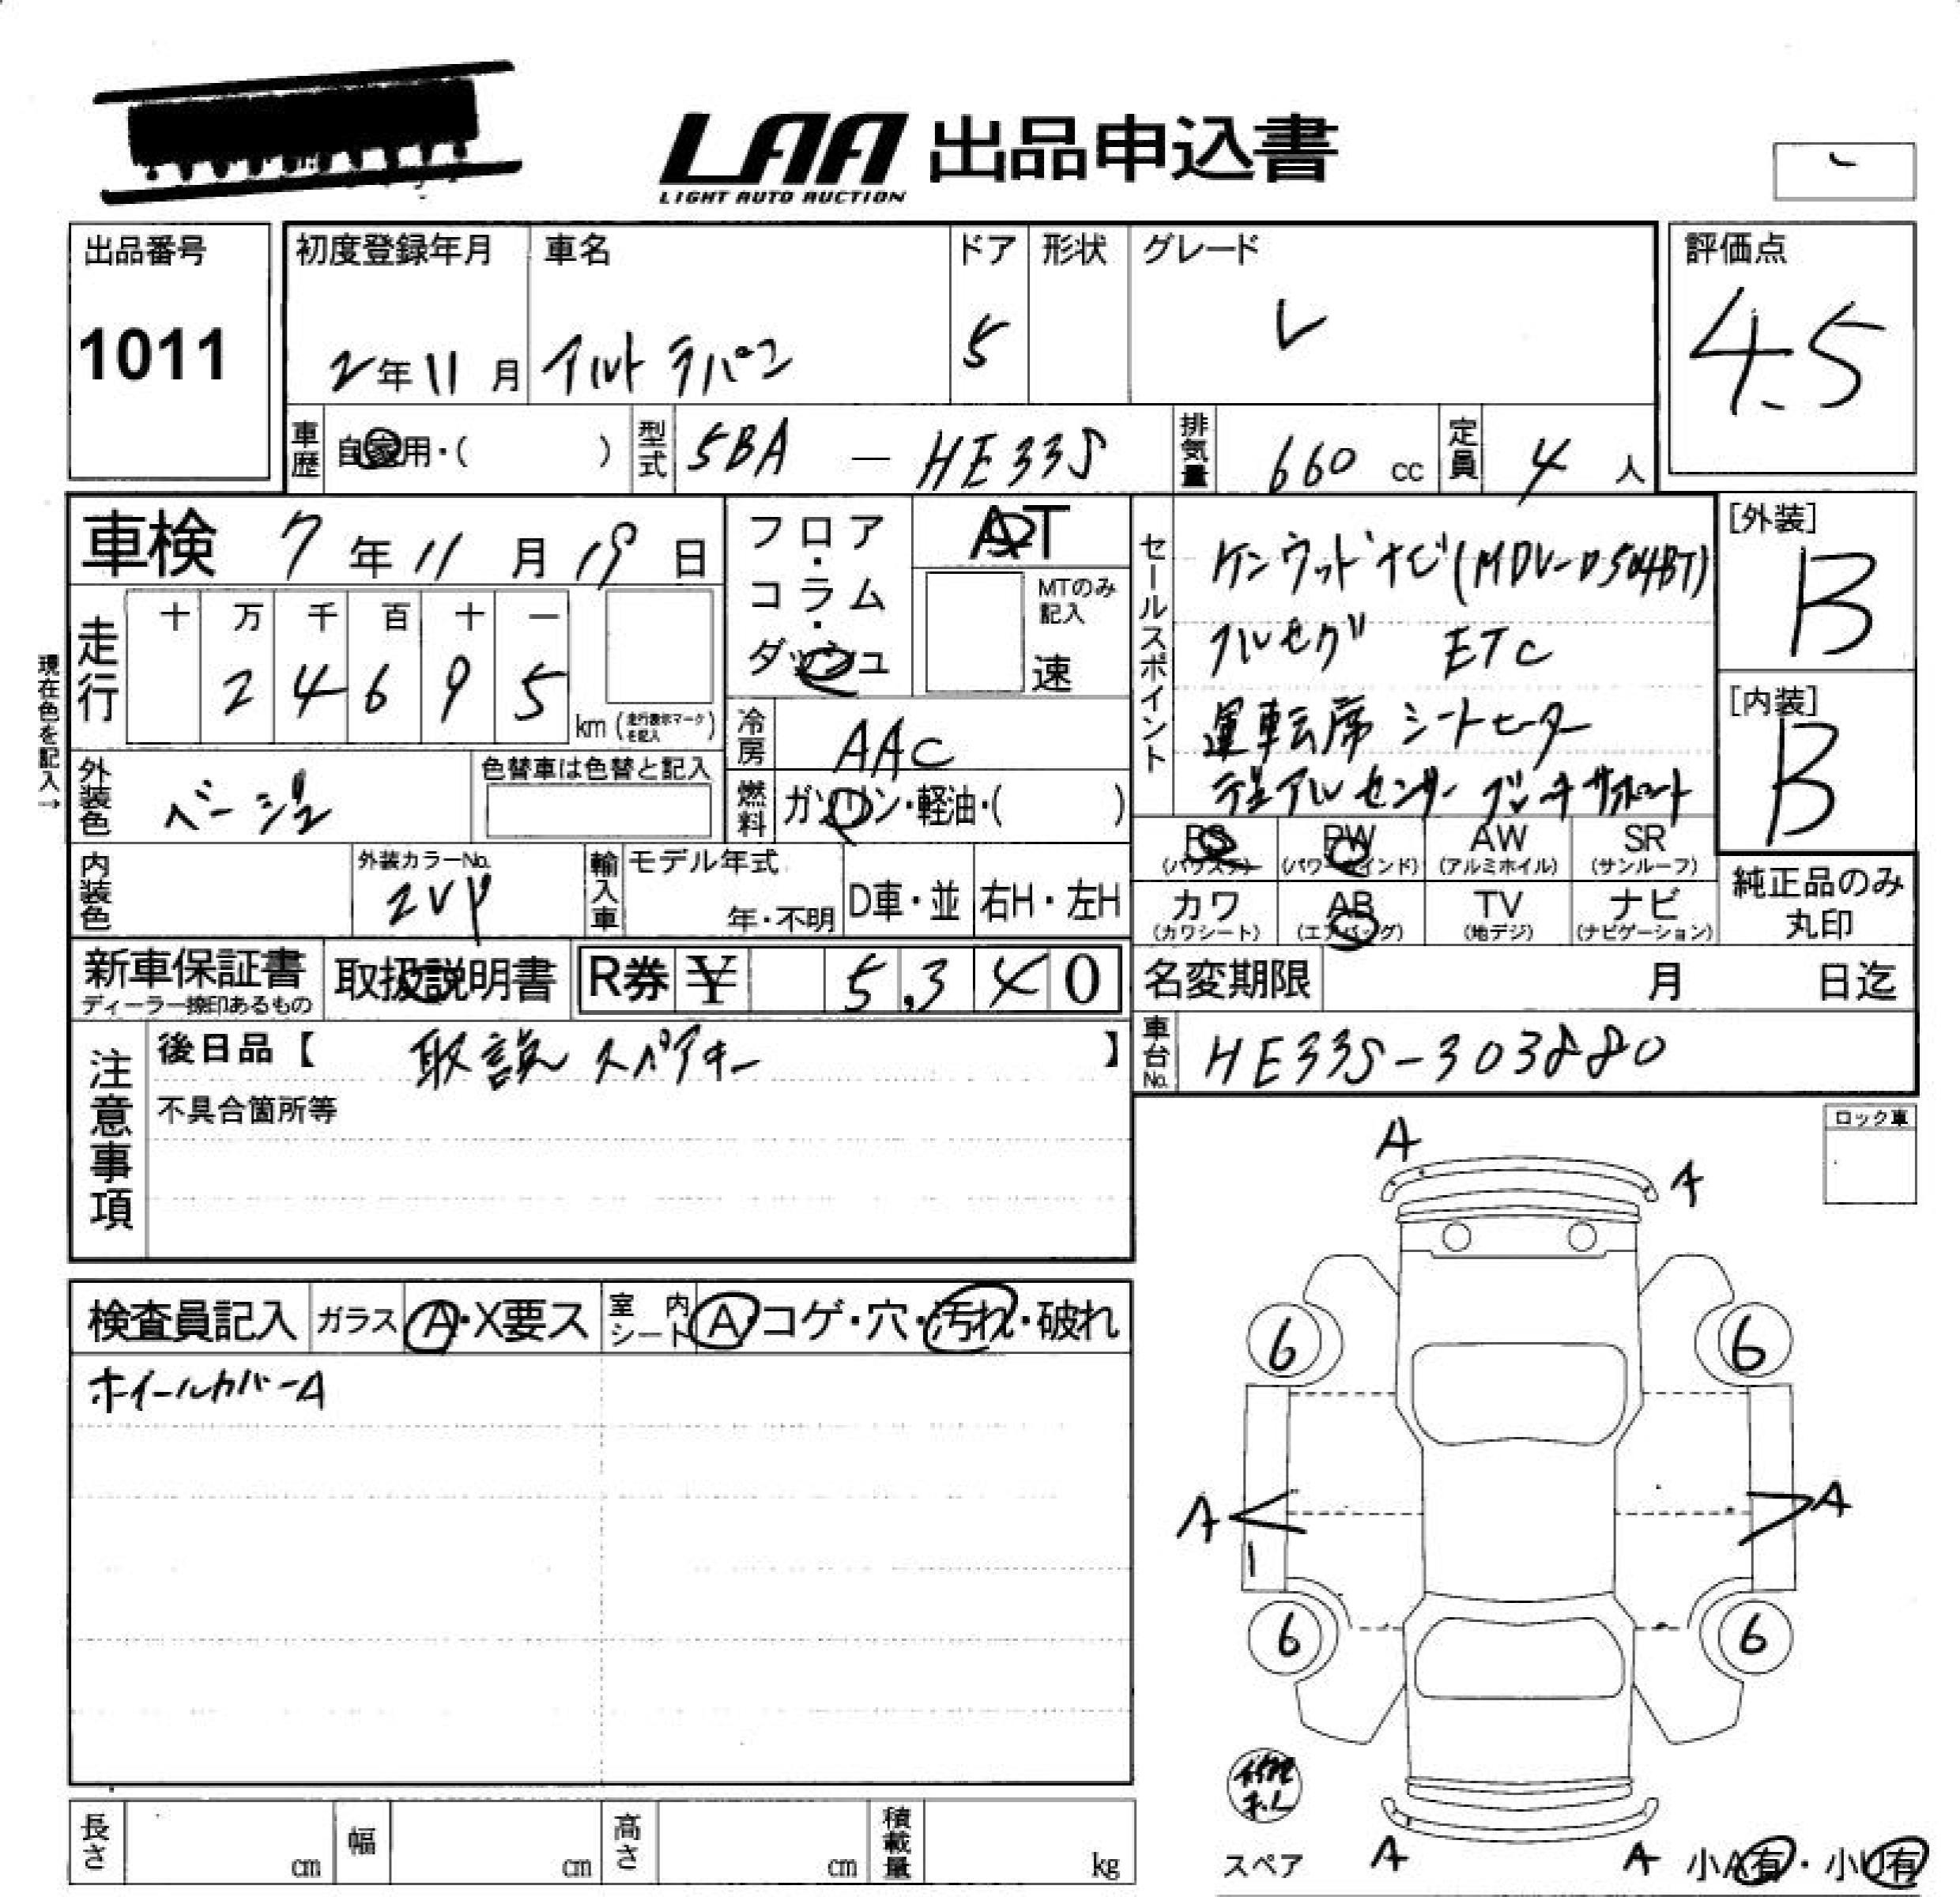 LAA 出品申込書
LIGHT AUTO AUCTION
出品番号
1011
初度登録年月
2年11月
車名
アルト ラパン
ドア
5
形状
グレード
L
評価点
4.5
車歴
自家用・( )
型式
5BA - HE33S
排気量
660 cc
定員
4 人
車検 7年11月19日
走行
十 万 千 百 十 一
2 4 6 9 5
km (走行表示マークを記入)
現在色を記入→
外装色
ベージュ
色替車は色替と記入
内装色
外装カラーNo.
2VP
フロア・コラム・ダッシュ
AT
MTのみ記入
速
冷房
AAC
燃料
ガソリン・軽油・( )
輸入車
モデル年式
年・不明
D車・並
右H・左H
セールスポイント
ケンウッドナビ(MDV-D504BT)
フルセグ ETC
運転席 シートヒーター
デュアル センサー ブレーキ サポート
[外装]
B
[内装]
B
PS (パワステ)
PW (パワーウインド)
AW (アルミホイル)
SR (サンルーフ)
カワ (カワシート)
AB (エアバッグ)
TV (地デジ)
ナビ (ナビゲーション)
純正品のみ丸印
新車保証書
ディーラー捺印あるもの
取扱説明書
R券 ¥ 5,340
名変期限 月 日迄
注意事項
後日品【 取説 スペアキー 】
不具合箇所等
車台No.
HE33S-303880
ロック車
検査員記入
ガラス A・X要ス
室内シート A・コゲ・穴・汚れ・破れ
ホイールカバーA
A
A
6
6
A
A
6
6
スペア
A
A
小A有・小U有
長さ cm
幅 cm
高さ cm
積載量 kg